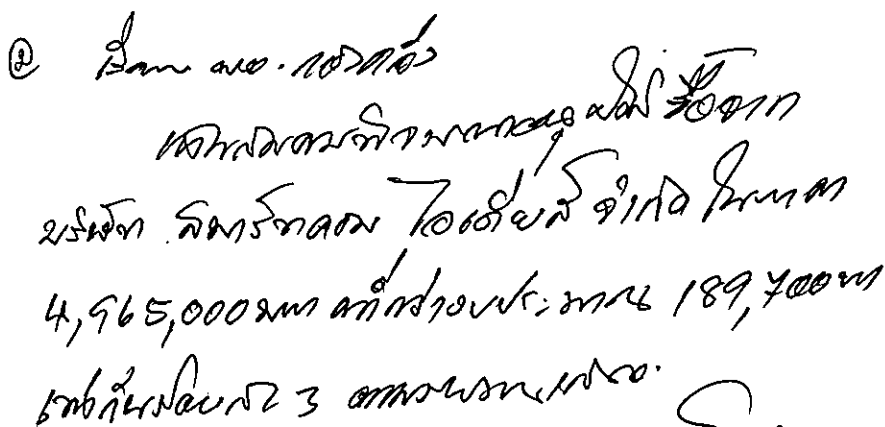 ② เรียน ผอ.กองคลัง
เห็นสมควรพิจารณาอนุมัติ ซื้อจาก
บริษัท สมาร์ทคอม ไอเดียส์ จำกัด ในราคา
4,965,000 บาท ต่ำกว่างบประมาณ 189,700 บาท
3